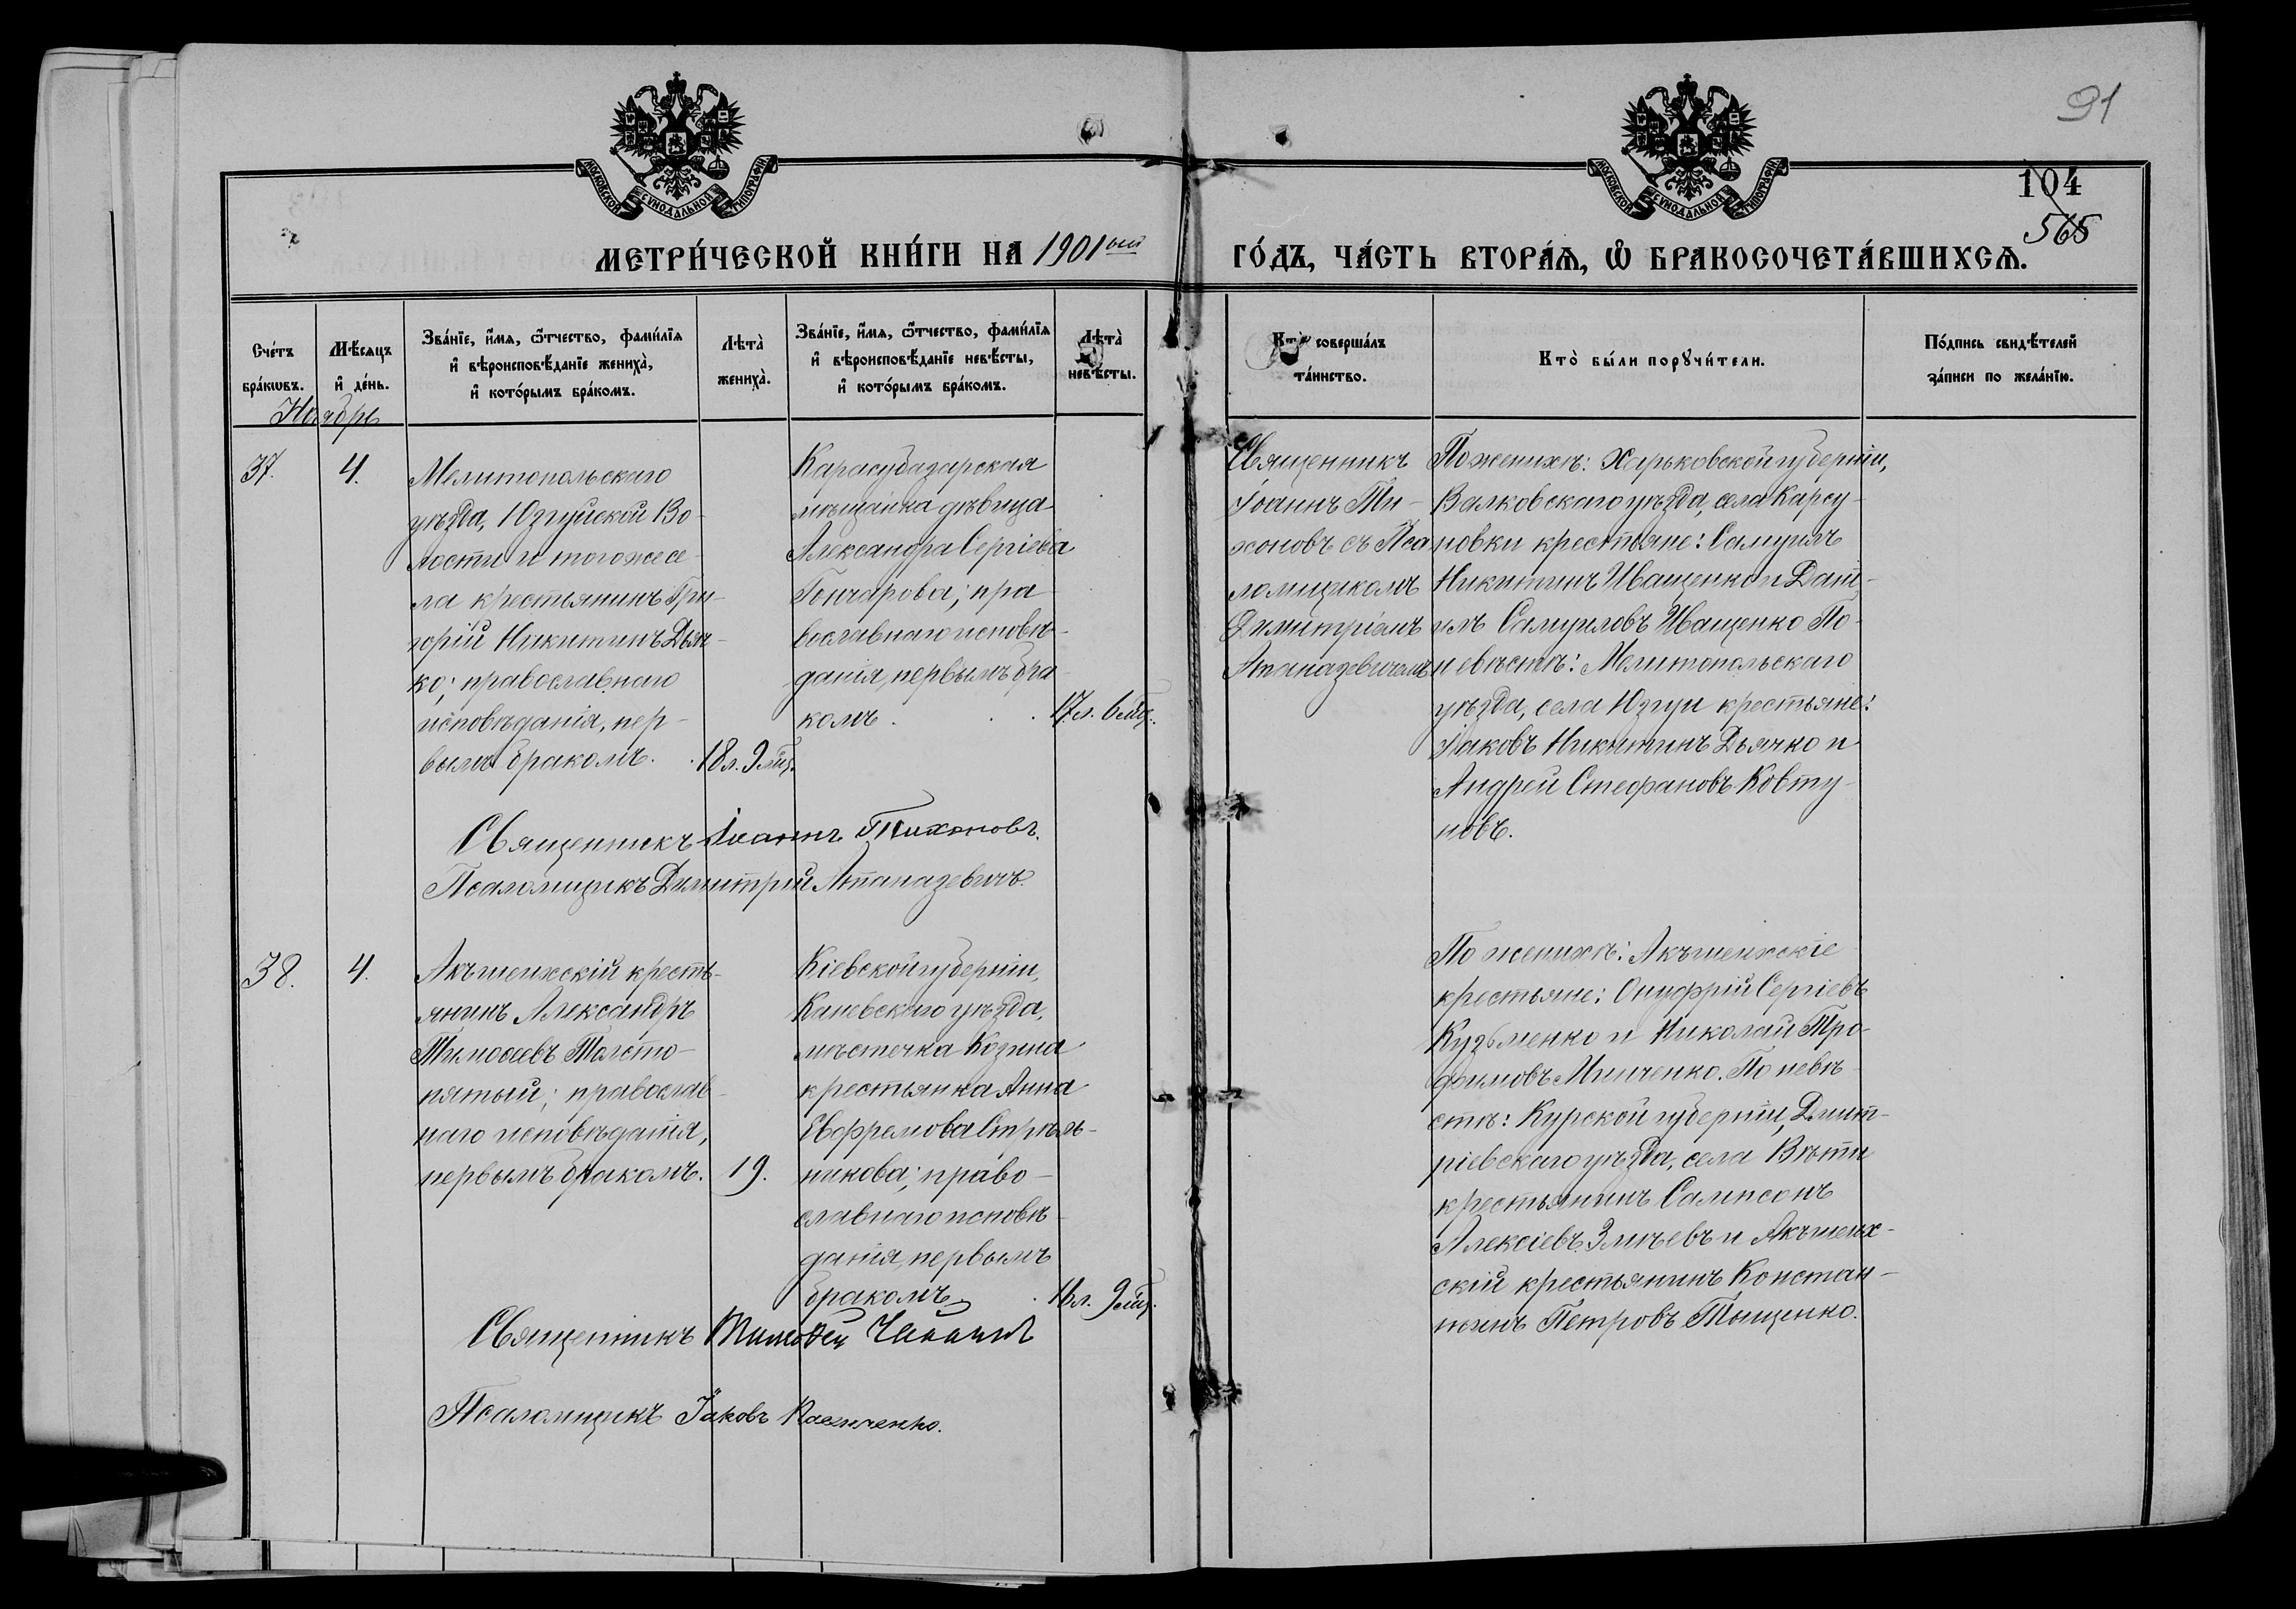 91
104
565
МОСКОВСКОЙ СѴНОДАЛЬНОЙ ТИПОГРАФІИ
МОСКОВСКОЙ СѴНОДАЛЬНОЙ ТИПОГРАФІИ
МЕТРИ́ЧЕСКОЙ КНИ́ГИ НА 1901ый ГО́ДЪ, ЧА́СТЬ ВТОРА́Ѧ, Ѡ҆ БРАКОСОЧЕТА́ВШИХСѦ.
Сче́тъ
бра́кѡвъ.
Мѣ́сяцъ
и҆ де́нь.
Зва́нїе, и҆́мя, ѻ҆́тчество, фами́лїя
и҆ вѣроисповѣ́данїе жениха̀,
и҆ кото́рымъ бра́комъ.
Лѣта̀
жениха̀.
Зва́нїе, и҆́мя, ѻ҆́тчество, фами́лїя
и҆ вѣроисповѣ́данїе невѣ́сты,
и҆ кото́рымъ бра́комъ.
Лѣта̀
невѣ́сты.
Кто̀ соверша́лъ
та́инство.
Кто̀ бы́ли порꙋчи́тели.
По́дпись свидѣ́телей
за́писи по жела́нїю.
Ноябрь
37.
4.
Мелитопольскаго
уѣзда, Юзгуйской Во-
лости и того же се-
ла крестьянинъ Гри-
горій Никитинъ Дьяч-
ко; православнаго
исповѣданія, пер-
вымъ бракомъ.
18 л. 9 мѣс.
Карасубазарская
мѣщанка дѣвица
Александра Сергіева
Гончарова; пра-
вославнаго исповѣ-
данія, первымъ бра-
комъ.
17 л. 6 мѣс.
Священникъ
Іоаннъ Ти-
хоновъ съ Пса
ломщикомъ
Димитріемъ
Атаназевичемъ
По женихѣ: Харьковской губерніи,
Валковскаго уѣзда, села Карсу-
новки крестьяне: Самуилъ
Никитинъ Иващенко и Дані-
илъ Самуиловъ Иващенко По
невѣстѣ: Мелитопольскаго
уѣзда, села Юзгуи крестьяне:
Іаковъ Никитинъ Дьячко и
Андрей Стефановъ Ковту-
новъ.
Священникъ Іоаннъ Тихоновъ.
Псаломщикъ Димитрій Атаназевичъ.
38.
4.
Акъшеихскій кресть-
янинъ Александръ
Тимоѳеевъ Толсто-
пятый; православ-
наго исповѣданія,
первымъ бракомъ.
19.
Кіевской губерніи,
Каневскаго уѣзда,
мѣстечка Козина
крестьянка Анна
Евфремова Стрѣль-
никова; право-
славнаго исповѣ-
данія, первымъ
бракомъ
16 л. 9 мѣс.
По женихѣ: Акъшеихскіе
крестьяне: Онуфрій Сергіевъ
Кузьменко и Николай Тро-
фимовъ Минченко. По невѣ-
стѣ: Курской губерніи, Дмит-
ріевскаго уѣзда, села Вѣти
крестьянинъ Сампсонъ
Алексіевъ Змѣевъ и Акъшеих-
скій крестьянинъ Констан-
тинъ Петровъ Тыщенко.
Священникъ Тимоѳей
Псаломщикъ Іаковъ